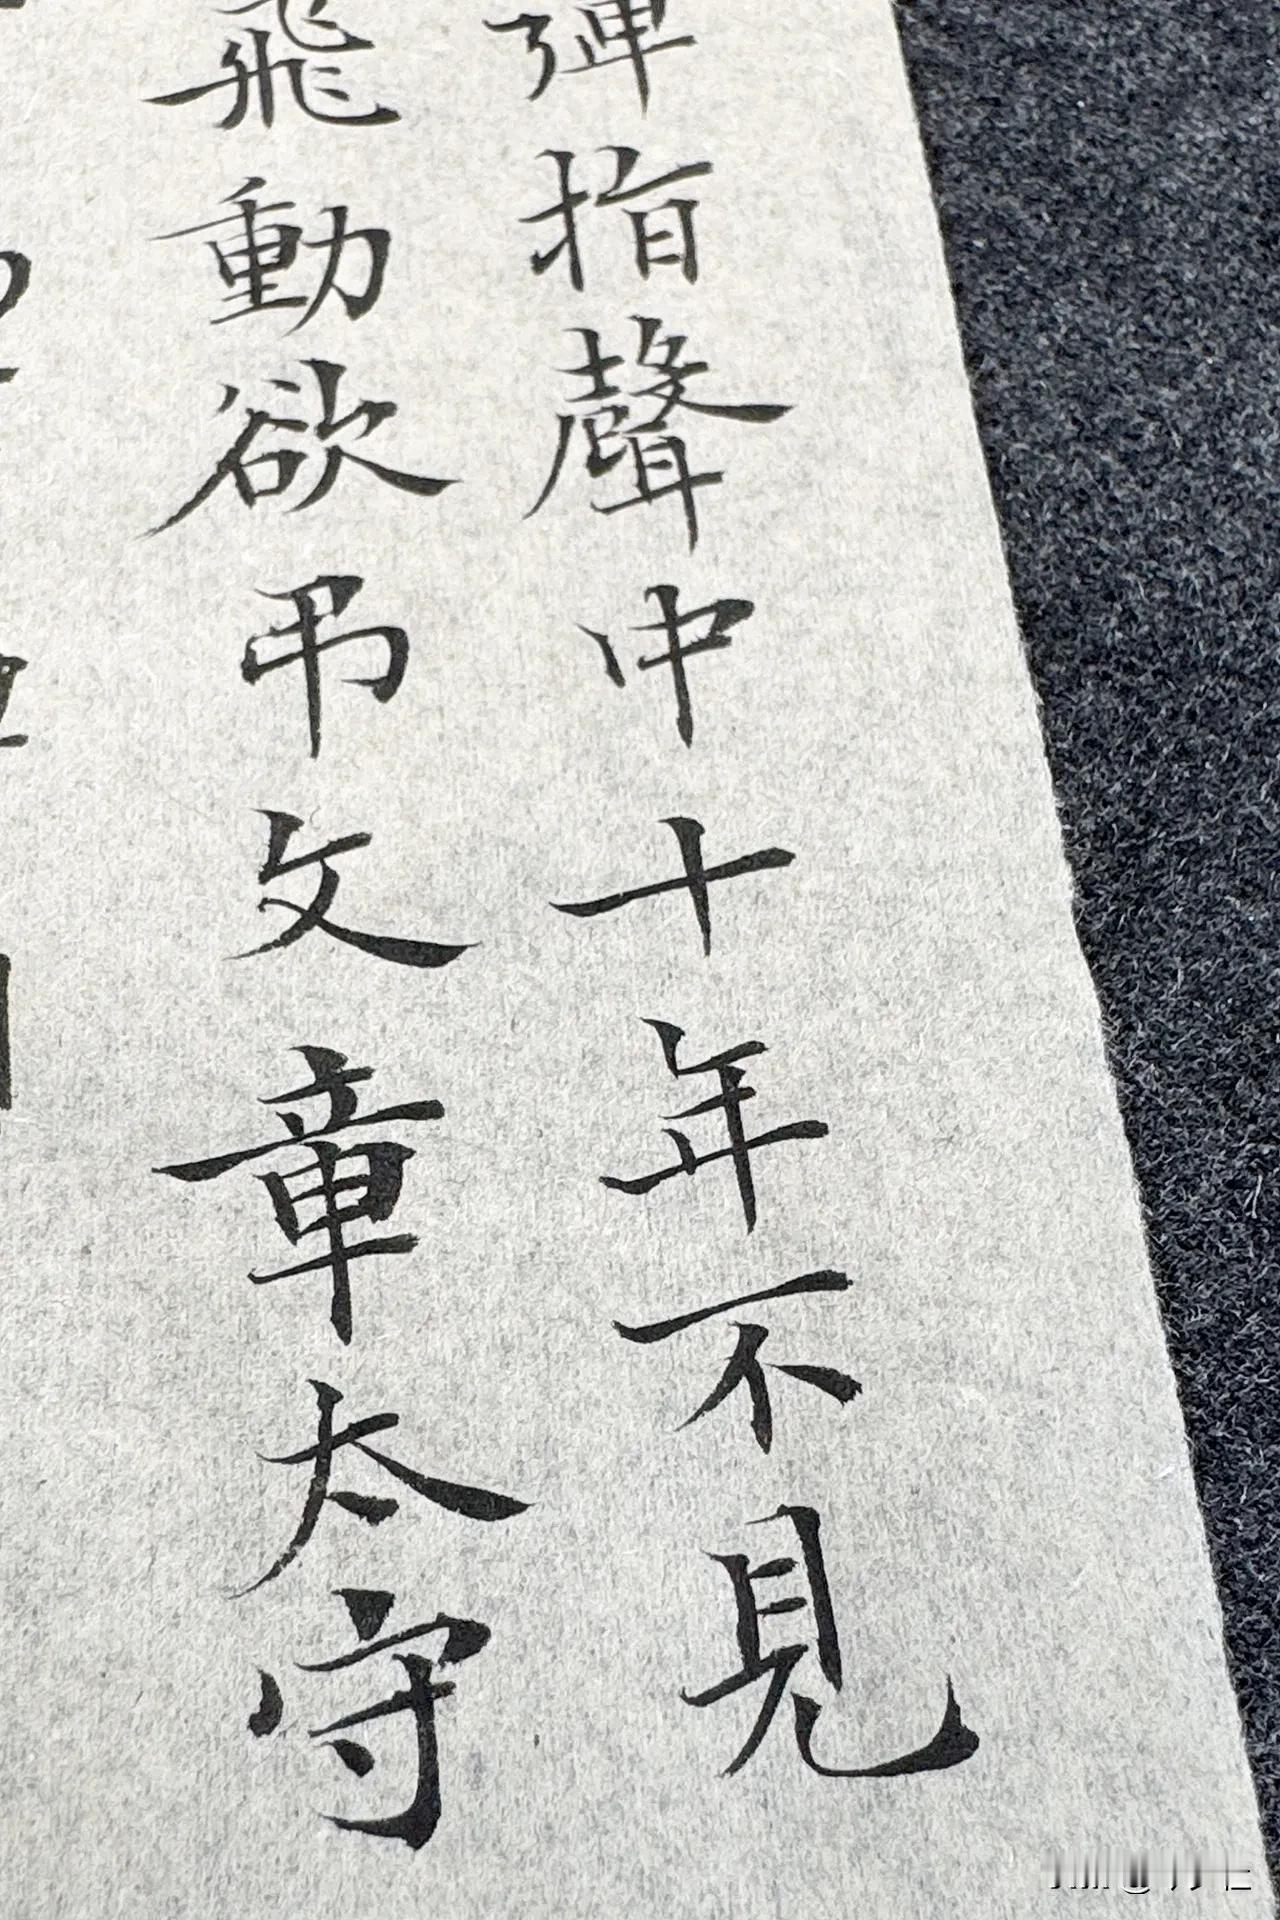 彈指聲中十年不見
飛動欲弔文章太守